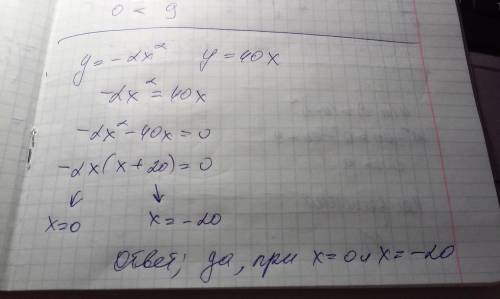 0 < 9
y = -2x² y = 40x
-2x² = 40x
-2x² - 40x = 0
-2x(x + 20) = 0
↓ ↓
x = 0 x = -20
Ответ; да, при x = 0 и x = -20